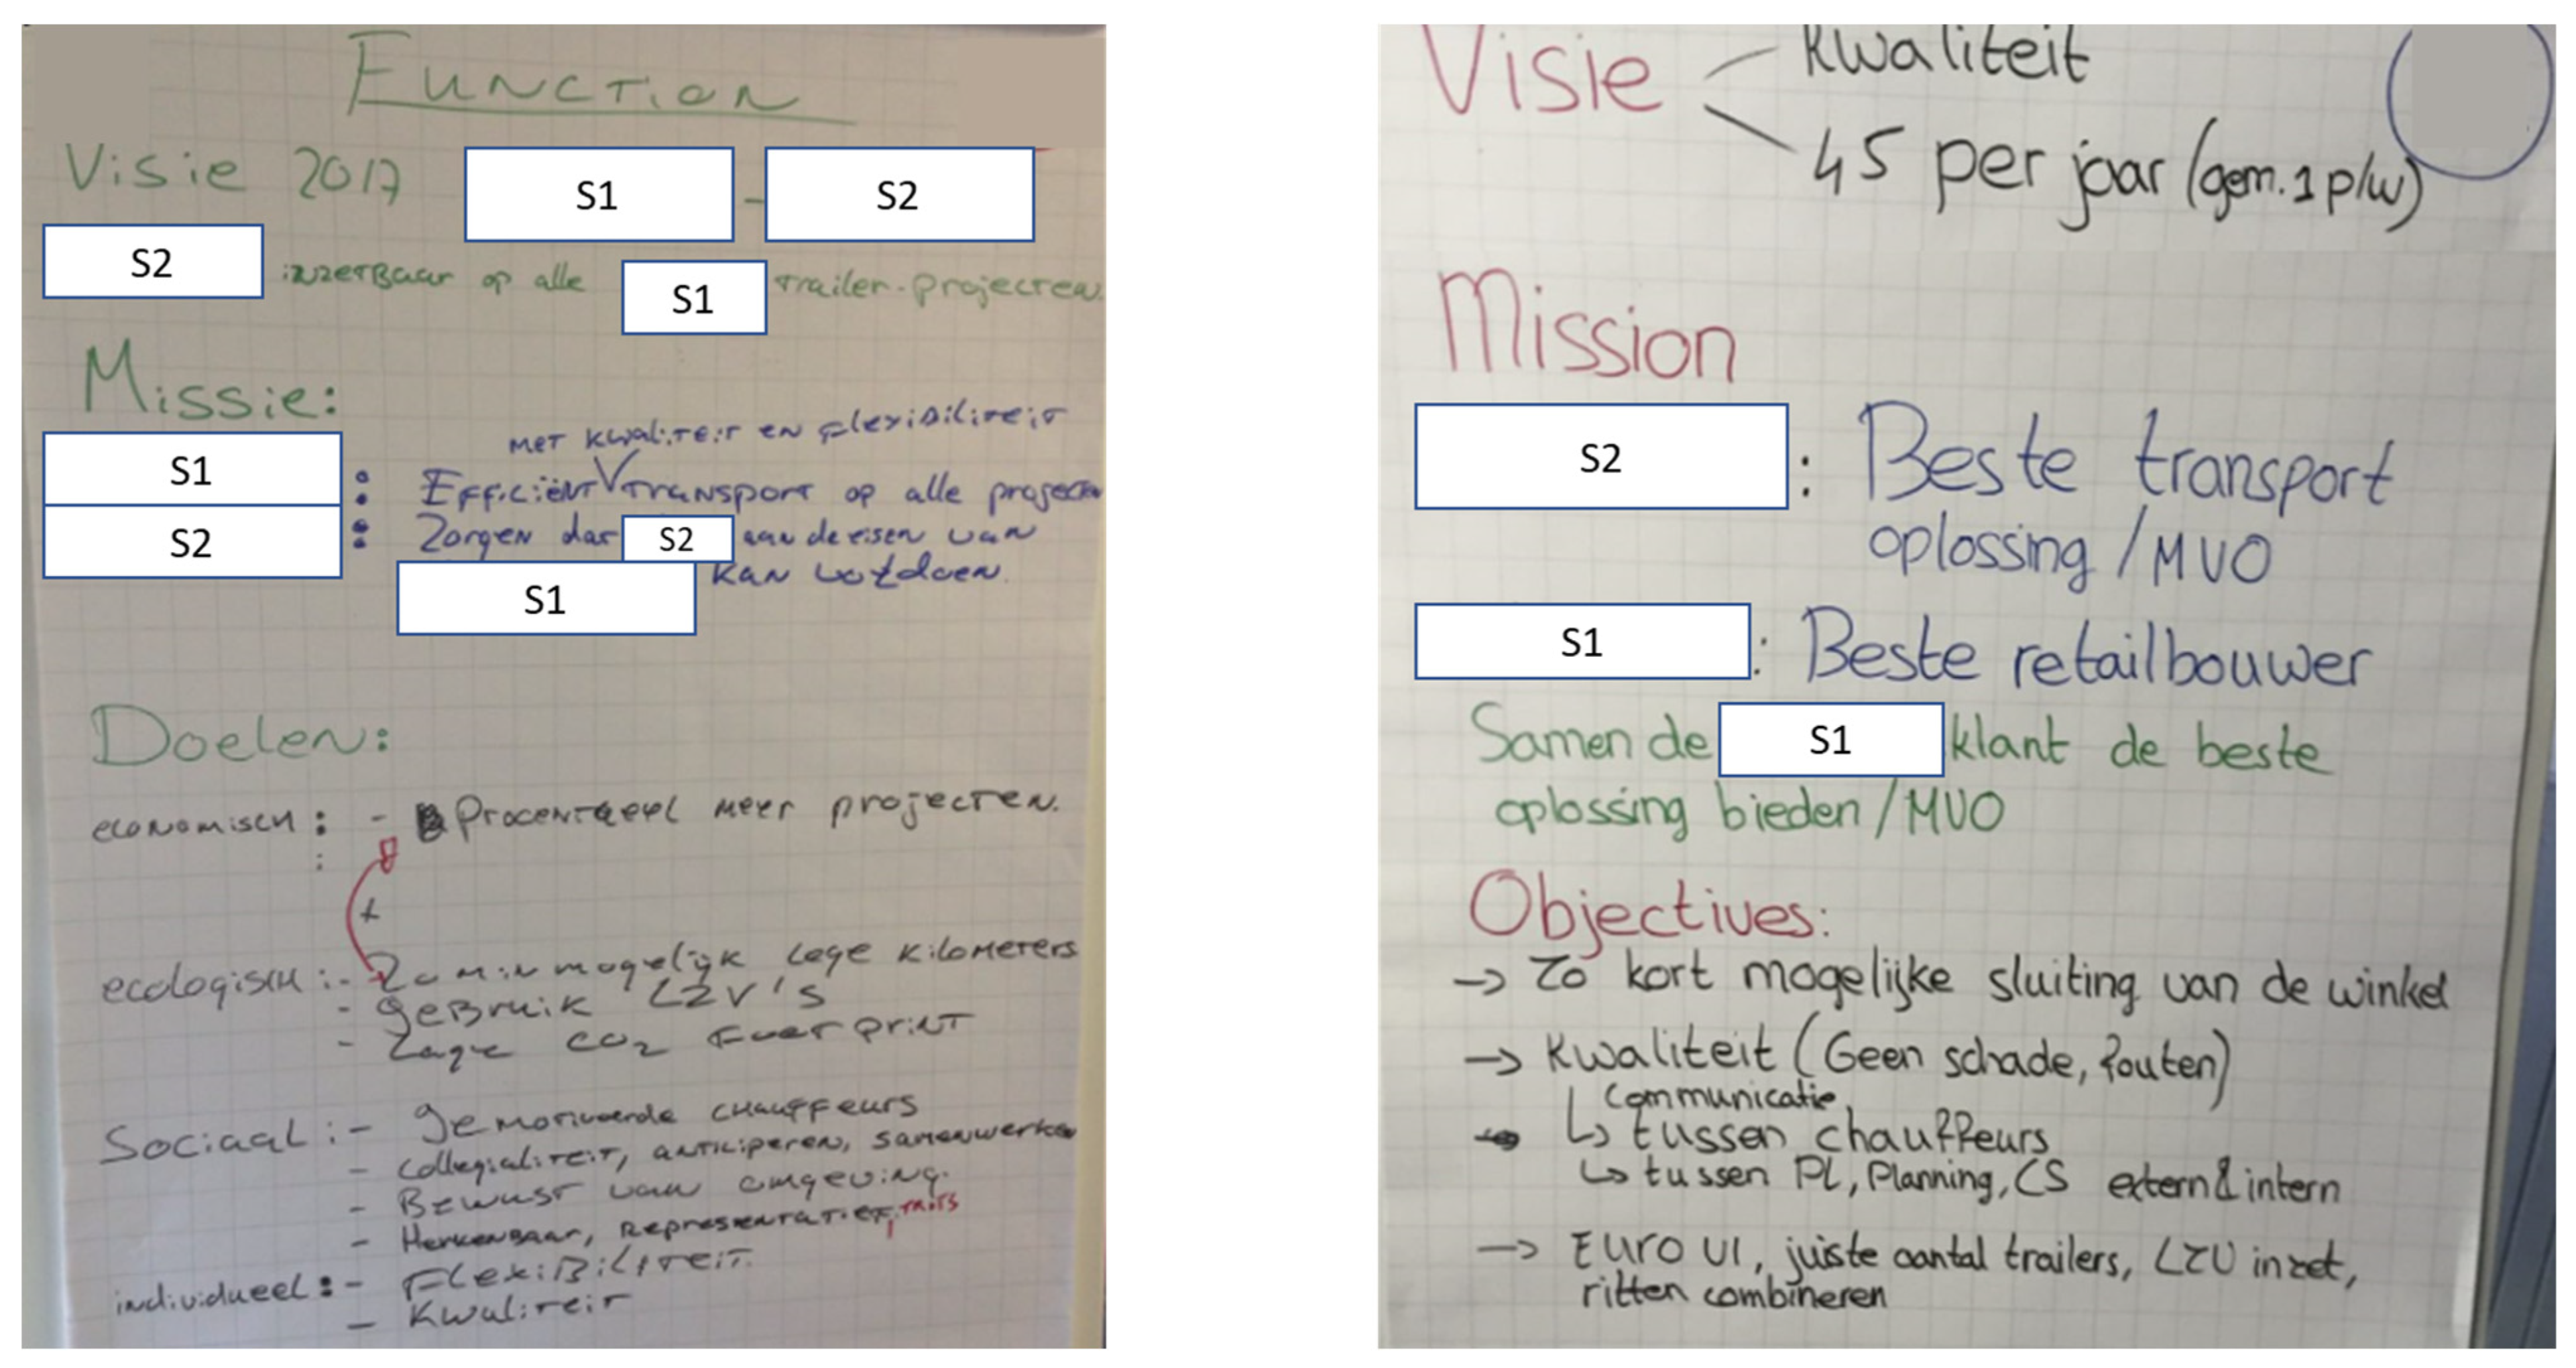 Function
Visie 2017 S1 - S2
S2 inzetbaar op alle S1 trailer-projecten.
Missie:
met kwaliteit en flexibiliteit
S1 : Efficiënt V transport op alle projecten
S2 : Zorgen dat S2 aan de eisen van
S1 kan voldoen.
Doelen:
economisch : - Procentueel meer projecten.
:
+
ecologisch : - Zo min mogelijk lege kilometers
- gebruik LZV's
- Lage CO2 Footprint
Sociaal : - gemotiveerde chauffeurs
- collegialiteit, anticiperen, samenwerken
- Bewust van omgeving.
- Herkenbaar, Representatief,
individueel : - Flexibiliteit
- Kwaliteit
Visie
Kwaliteit
45 per jaar (gem. 1 p/w)
Mission
S2 : Beste transport
oplossing / MVO
S1 : Beste retailbouwer
Samen de S1 klant de beste
oplossing bieden / MVO
Objectives:
→ Zo kort mogelijke sluiting van de winkel
→ Kwaliteit (Geen schade, fouten)
Communicatie
↳ tussen chauffeurs
↳ tussen PL, Planning, CS extern & intern
→ Euro VI, juiste aantal trailers, LZV inzet,
ritten combineren